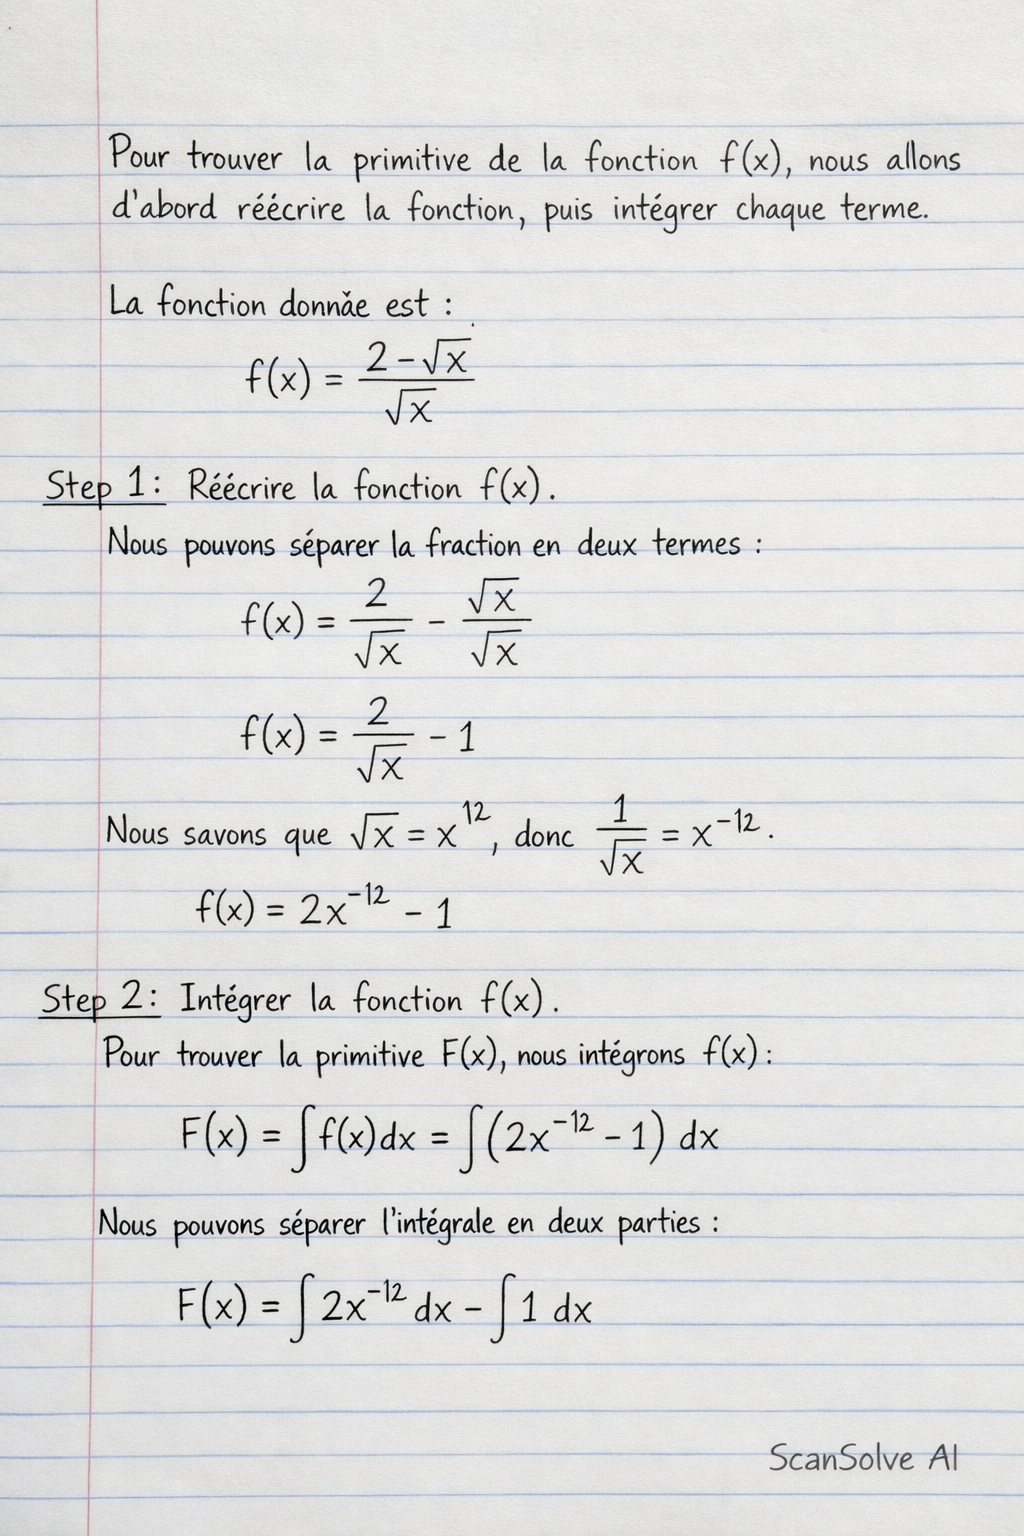 Pour trouver la primitive de la fonction f(x), nous allons
d'abord réécrire la fonction, puis intégrer chaque terme.
La fonction donnǎe est :
f(x) = (2 - √x) / √x
Step 1: Réécrire la fonction f(x).
Nous pouvons séparer la fraction en deux termes :
f(x) = 2/√x - √x/√x
f(x) = 2/√x - 1
Nous savons que √x = x^12, donc 1/√x = x^-12.
f(x) = 2x^-12 - 1
Step 2: Intégrer la fonction f(x).
Pour trouver la primitive F(x), nous intégrons f(x) :
F(x) = ∫f(x)dx = ∫(2x^-12 - 1) dx
Nous pouvons séparer l'intégrale en deux parties :
F(x) = ∫2x^-12 dx - ∫1 dx
ScanSolve AI